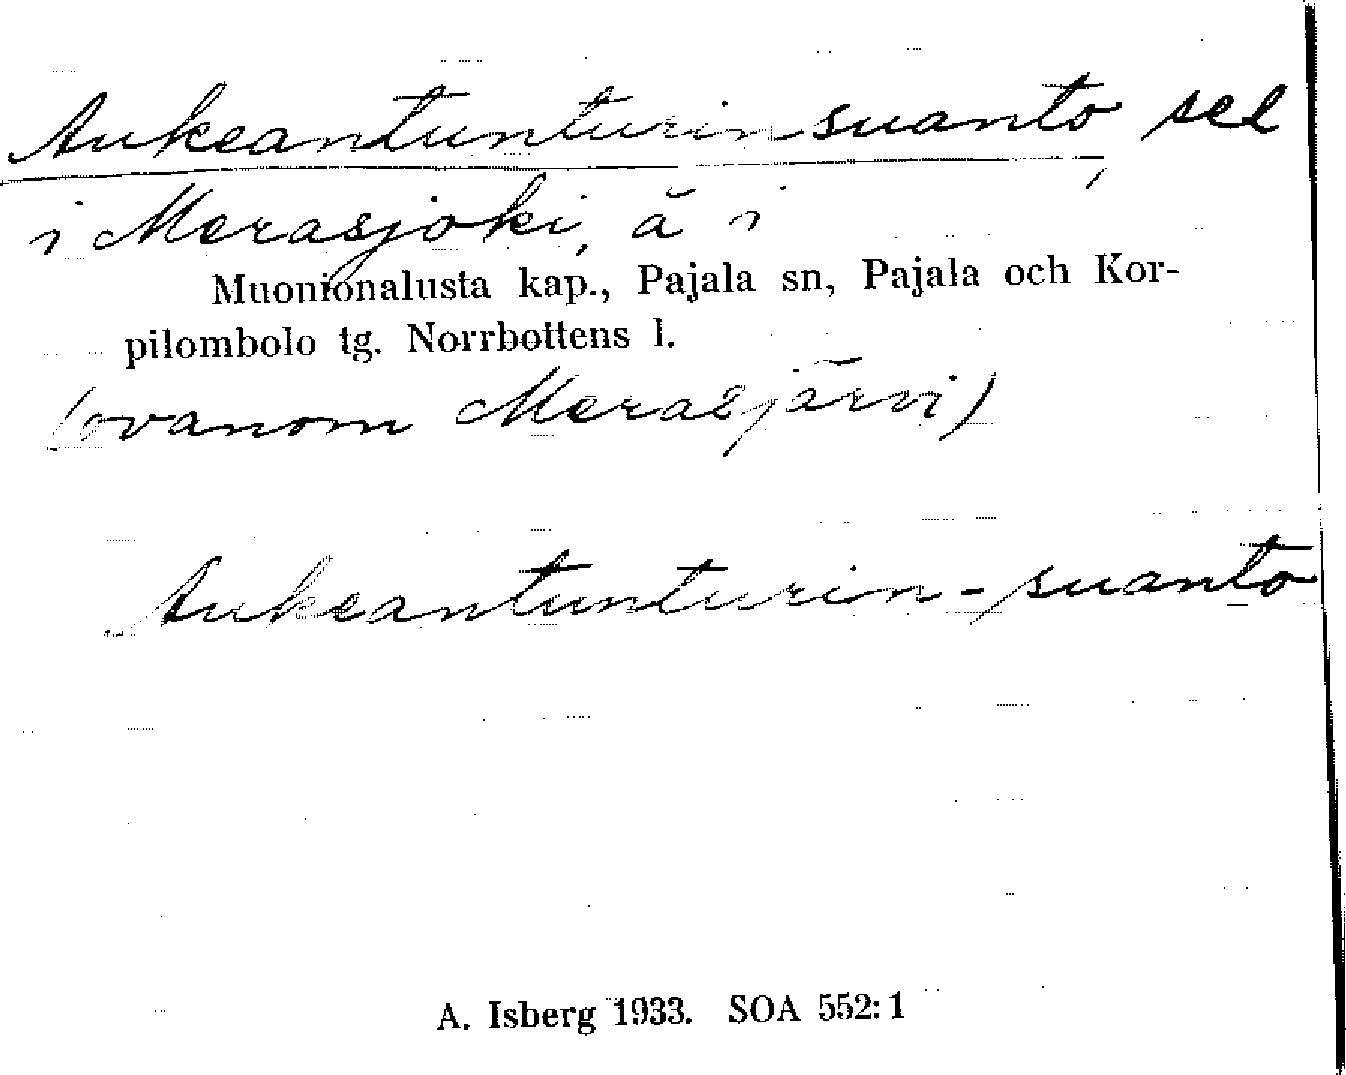 Aukeantunturinsuanto, sel
i Merasjoki, å i
Muonionalusta kap., Pajala sn, Pajala och Kor-
pilombolo tg. Norrbottens l.
(ovanom Merasjärvi)
Aukeantunturin-suanto
A. Isberg 1933. SOA 552:1